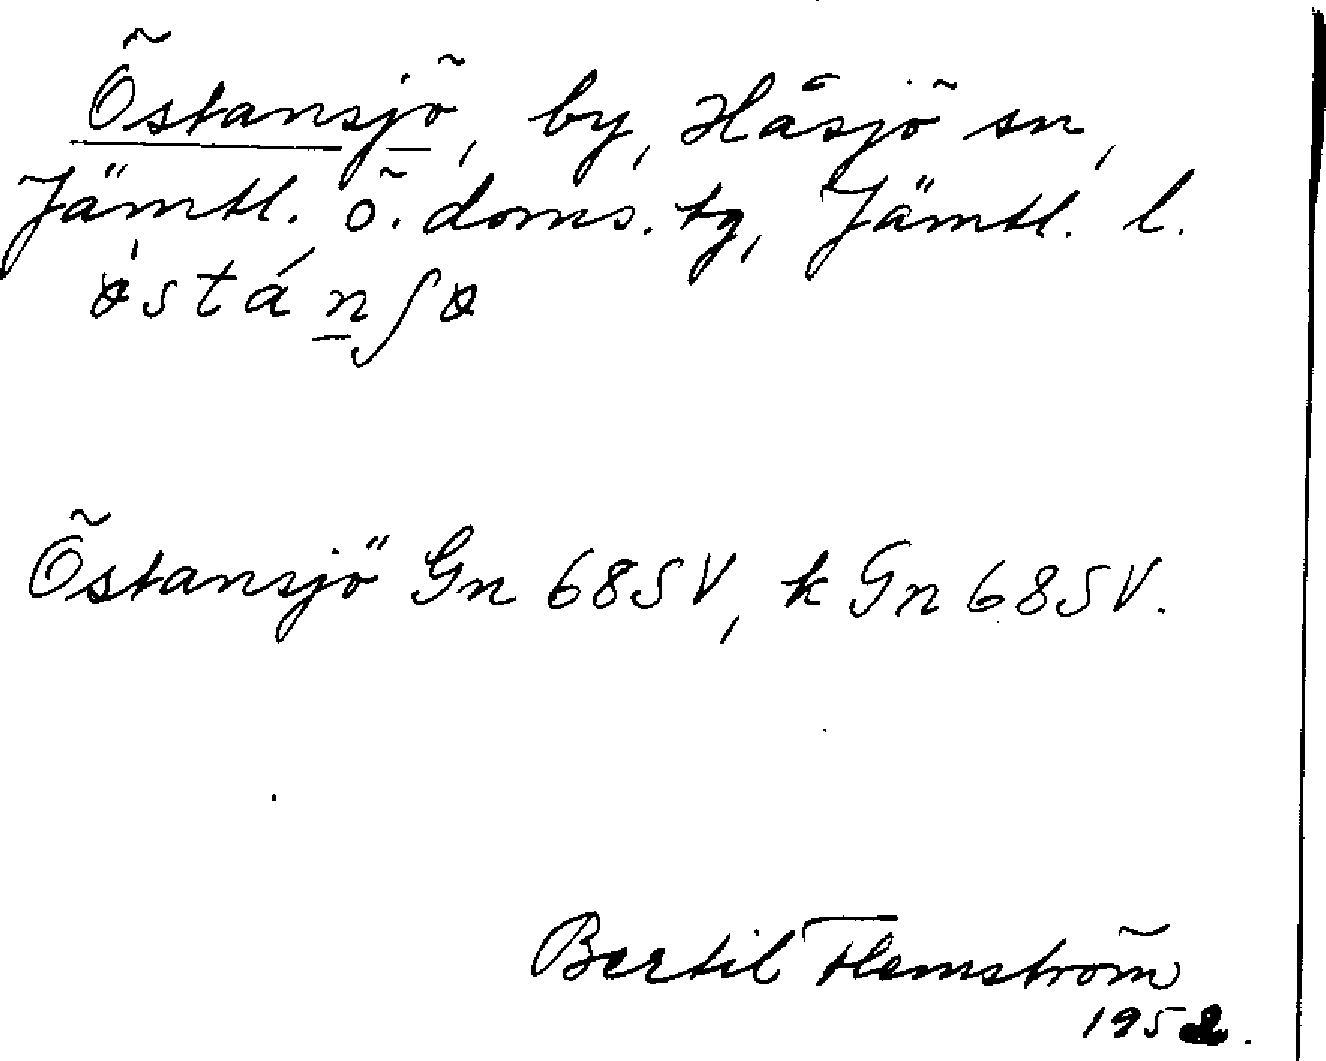 Östansjö, by, Håsjö sn,
Jämtl. ö. doms. tg, Jämtl. l.
ö̀stánʃö
Östansjö Gn 68SV, k Gn 68SV.
Bertil Flemström
1952.